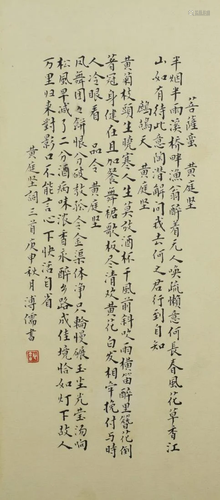 菩薩蠻 黃庭堅
半烟半雨溪橋畔漁翁醉着无人喚疏懶意何長春風花草香江
山如有待此意陶潛解問我去何之君行到自知
鷓鴣天 黃庭堅
黃菊枝頭生曉寒人生莫放酒杯乾風前斜吹雨橫笛醉裏簪花倒
著冠身健在且加餐舞裙歌板盡清歡黃花白髮相牽挽付與時
人冷眼看 品令 黃庭堅
鳳舞團團餅恨分破教孤令金渠體淨只輪慢碾玉塵光瑩湯响
松風早減了二分酒病味濃香永醉鄉路成佳境恰如灯下故人
万里歸來對影口不能言心下快活自省
黃庭堅詞三首庚申秋月溥儒書